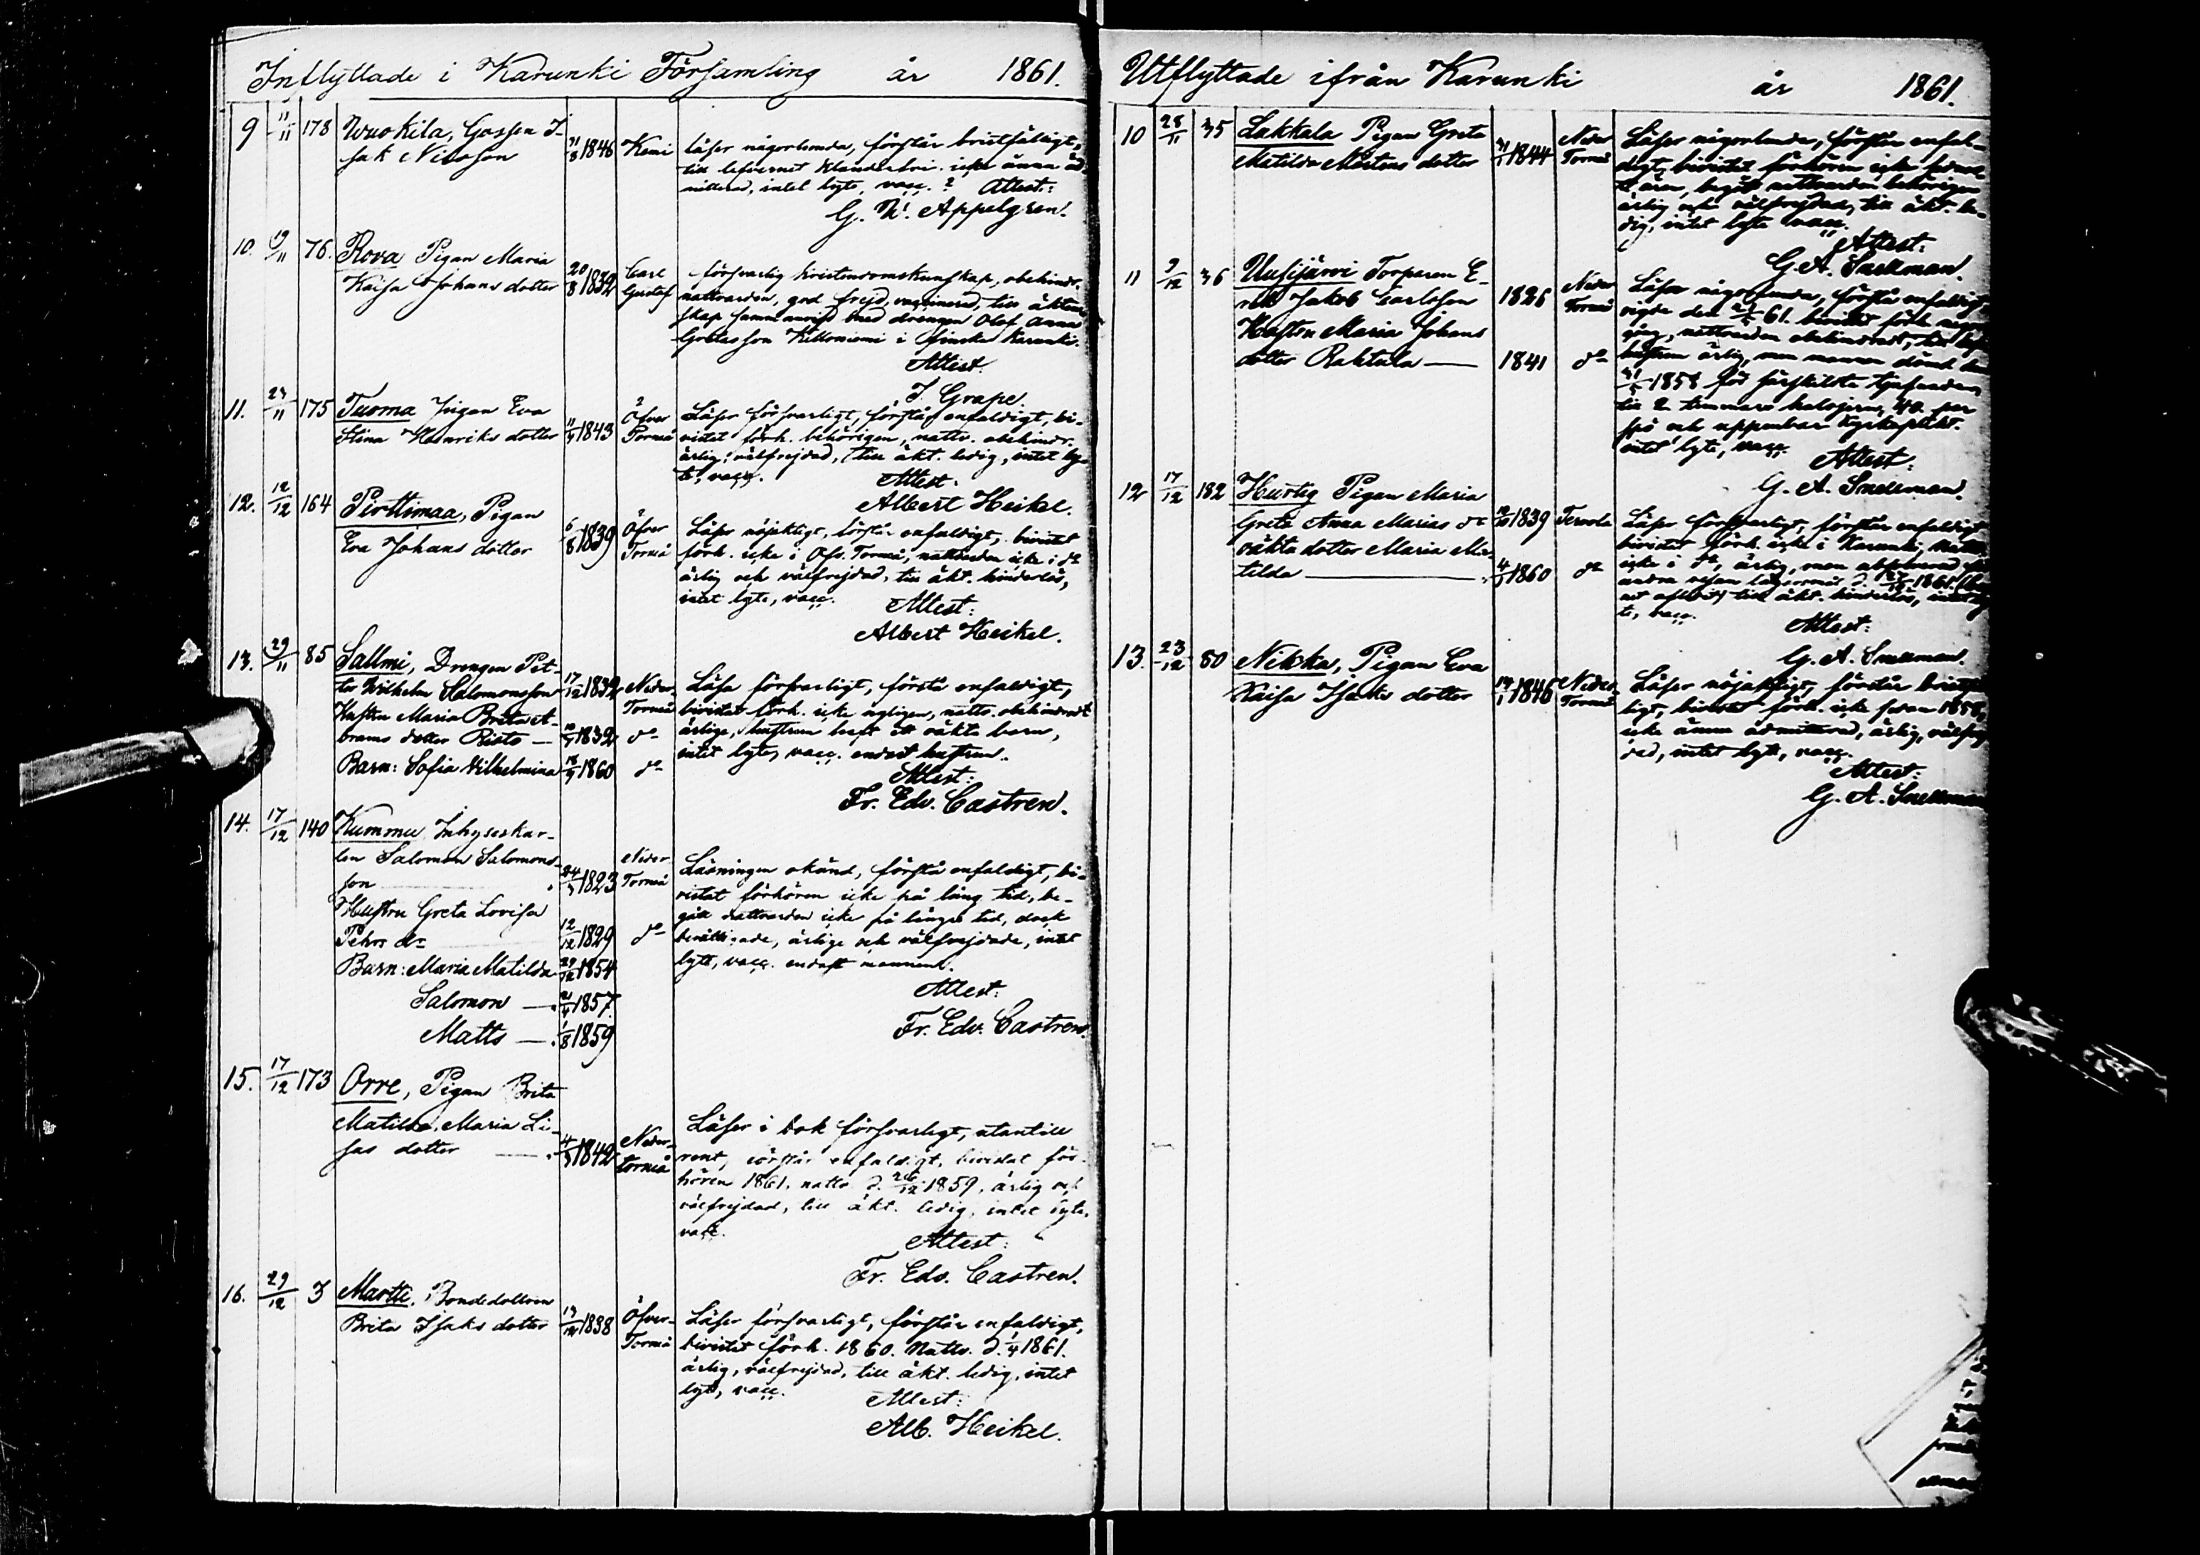 Inflyttade i Karunki Församling år 1861.
9 11/11 178 Wuokila, Gossen I-
sak Nilsson 1846 Kemi
läser någorlunda, förstår bristfälligt,
till lefvernet klanderfri. icke ännu ad-
mitterad, intet lyte, vacc. ? Attest:
G. W. Appelgren.
10. 19/11 76. Rova Pigan Maria
Kaisa Johans dotter 20/8 1832 Carl
Gustaf
försvarlig kristendomskunskap, obehindr.
nattvarden, god frejd, vaccinerad, till äkten-
skap sammanvigd med drengen Olof Anna
Gretasson Killoniemi i finska Karunki.
Attest.
J. Grape.
11. 23/11 175 Tuoma Pigan Eva
Stina Henriks dotter 11/4 1843 Öfver
Torneå
Läser försvarligt, förstår enfaldigt, bi-
vistat förh. behörigen, nattv. obehindr.
ärlig, välfrejdad, till äkt. ledig, intet ly-
te, vacc.
Attest.
Albert Heikel.
12. 12/12 164 Pirttimaa, Pigan
Eva Johans dotter 6/8 1839 Öfver
Torneå
Läser nöjaktigt, förstår enfaldigt, bivistat
förh. icke i Öfv. Torneå, nattvarden icke i do
ärlig och välfrejdad, till äkt. hinderlös,
intet lyte, vacc.
Attest:
Albert Heikel.
13. 29/11 85 Sallmi, Drengen Pet-
ter Wilhelm Salomonsson 17/12 1832 Neder
Torneå
Hustru Maria Brita A-
brams dotter Risto — 1832 do
Barn: Sofia Vilhelmina 1860 do
Läsa försvarligt, förstå enfaldigt,
bivistat förh. icke nyligen, nattv. obehindradt
ärlige, hustrun haft ett oäkta barn,
intet lyte, vacc. endast hustrun.
Attest:
Fr. Edv. Castren.
14. 17/12 140 Kummu Inhyseskar-
len Salomon Salomons-
son 24/3 1823 Neder
Torneå
Hustru Greta Lovisa
Pehrs dr 12/12 1829 do
Barn: Maria Matilda 29/12 1854
Salomon — 2/4 1857.
Matts — 1/8 1859
Läsningen okänd, förstå enfaldigt, bi-
vistat förhören icke på lång tid, be-
gått nattvarden icke på länge tid, dock
berättigade, ärlige och välfrejdade, intet
lyte, vacc. endast mannen.
Attest:
Fr. Edv. Castren.
15. 17/12 173 Orre, Pigan Brita
Matilda Maria Li-
sas dotter — 4/3 1842 Neder-
torneå
Läser i bok försvarligt, utantill
rent, förstår enfaldigt, bivistat för-
hören 1861, nattv. d. 26/12 1859, ärlig och
välfrejdad, till äkt. ledig, intet lyte,
vacc.
Attest:
Fr. Edv. Castren.
16. 29/12 3 Martti, Bondedottern
Brita Isaks dotter 13/12 1838 Öfver-
Torneå
Läser försvarligt, förstår enfaldigt,
bivistat förh. 1860. Nattv. d. 1/4 1861.
ärlig, välfrejdad, till äkt. ledig, intet
lyte, vacc.
Attest:
Alb. Heikel.
Utflyttade ifrån Karunki år 1861.
10 28/11 35 Lakkala Pigan Greta
Matilda Mårtens dotter 1844 Neder
Torneå
Läser någorlunda, förstår enfal-
digt, bivistat förhören icke
åren, begått nattvarden behörigen
ärlig och välfrejdad, till äkt. le-
dig, intet lyte vacc.
Attest:
G. A. Snellman.
11 9/12 36 Uusijärvi Torparen E-
rik Jakob Carlsson 1826 Neder
Torneå
Hustru Maria Johans
dotter Raktula — 1841 do
Läsa någorlunda, förstå enfaldigt,
vigde den 61. bivistat förh.
gång, nattvarden obehindradt, till
hustrun ärlig, men mannen dömd den
1858 för särskildta tjufnader
till 2 timmars halsjern, 40. par
spö och uppenbar kyrkoplikt.
intet lyte, vacc.
Attest:
G. A. Snellman.
12 17/12 182 Hurtig Pigan Maria
Greta Anna Marias dr 1839 Tervola
oäkta dotter Maria Ma-
tilda — 1860 do
Läser försvarligt, förstår enfaldigt
bivistat förh. icke i Karunki, nattv.
icke i do, ärlig, men absolverad för
andra resan lägersmål d. 1861.
till äkt. hinderlös, intet ly-
te, vacc.
Attest:
G. A. Snellman.
13. 23/12 80 Nikka, Pigan Eva
Kaisa Isaks dotter 1846 Neder
Torneå
Läser nöjaktigt, förstår brist-
ligt, bivistat förh. icke sedan 1858,
icke ännu admitterad, ärlig, välfrej-
dad, intet lyte, vacc.
Attest:
G. A. Snellman